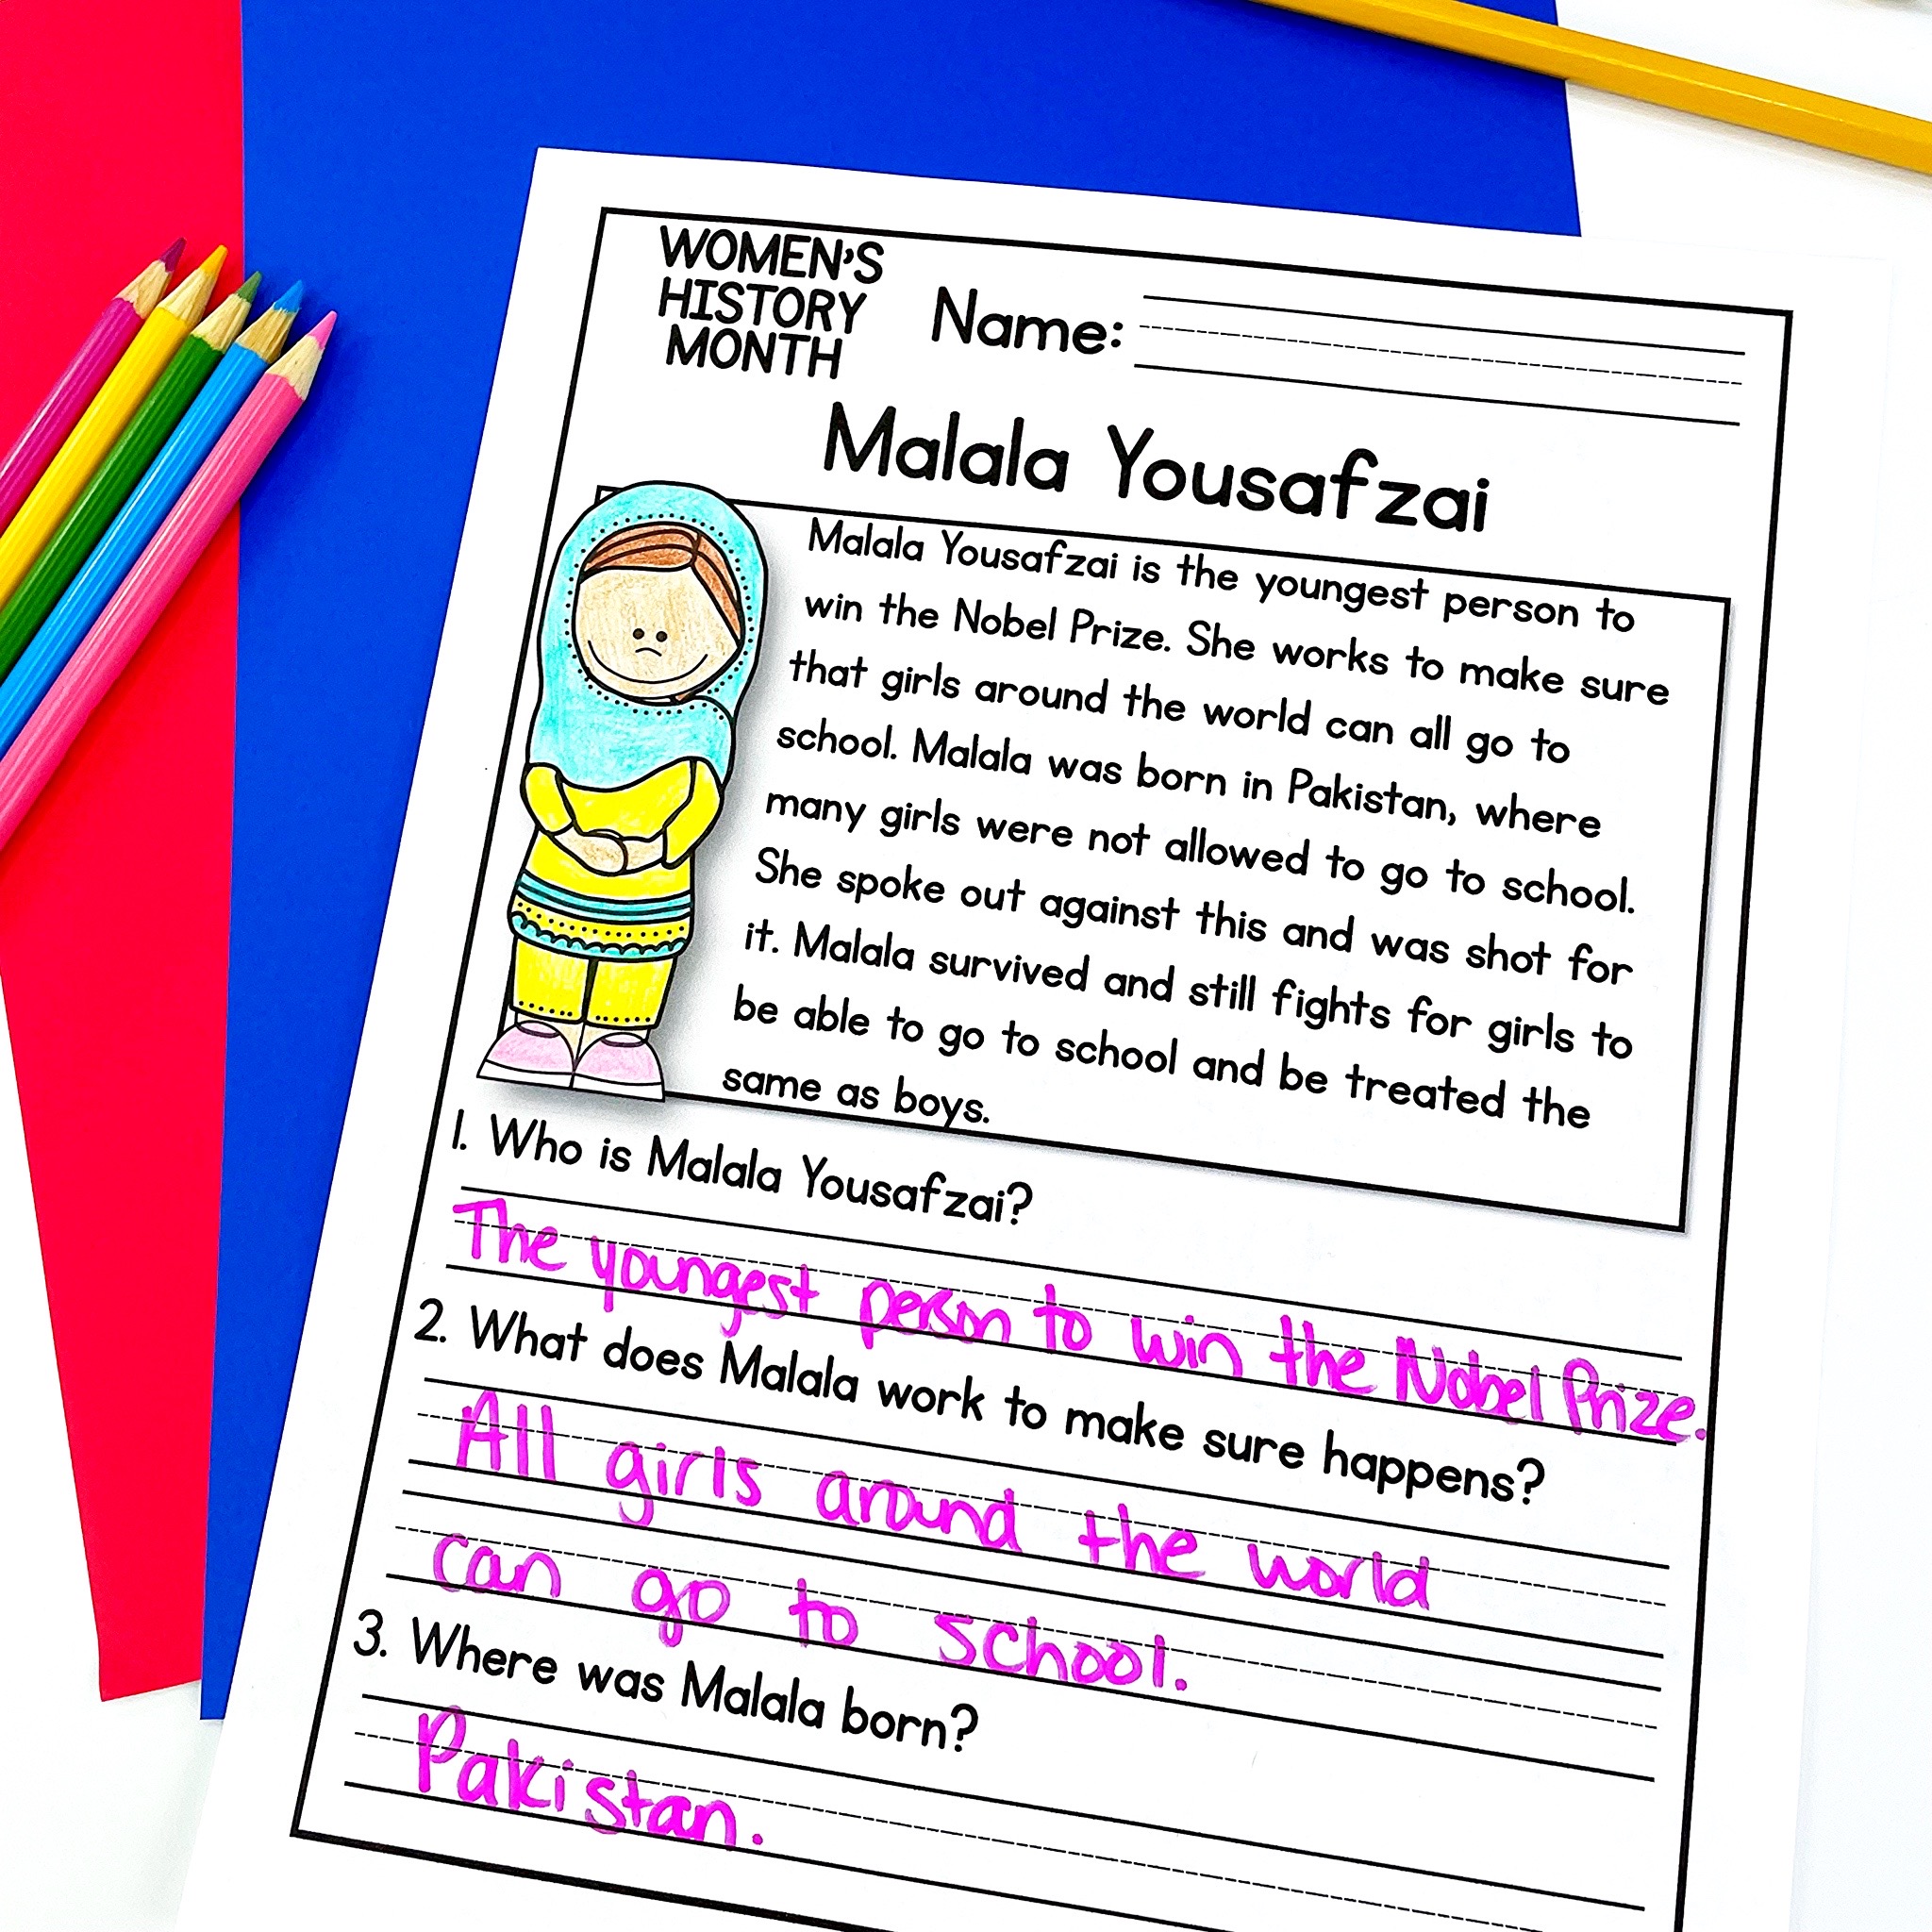 WOMEN'S
HISTORY
MONTH
Name:
Malala Yousafzai
Malala Yousafzai is the youngest person to
win the Nobel Prize. She works to make sure
that girls around the world can all go to
school. Malala was born in Pakistan, where
many girls were not allowed to go to school.
She spoke out against this and was shot for
it. Malala survived and still fights for girls to
be able to go to school and be treated the
same as boys.
1. Who is Malala Yousafzai?
The youngest person to win the Nobel Prize.
2. What does Malala work to make sure happens?
All girls around the world
can go to school.
3. Where was Malala born?
Pakistan.